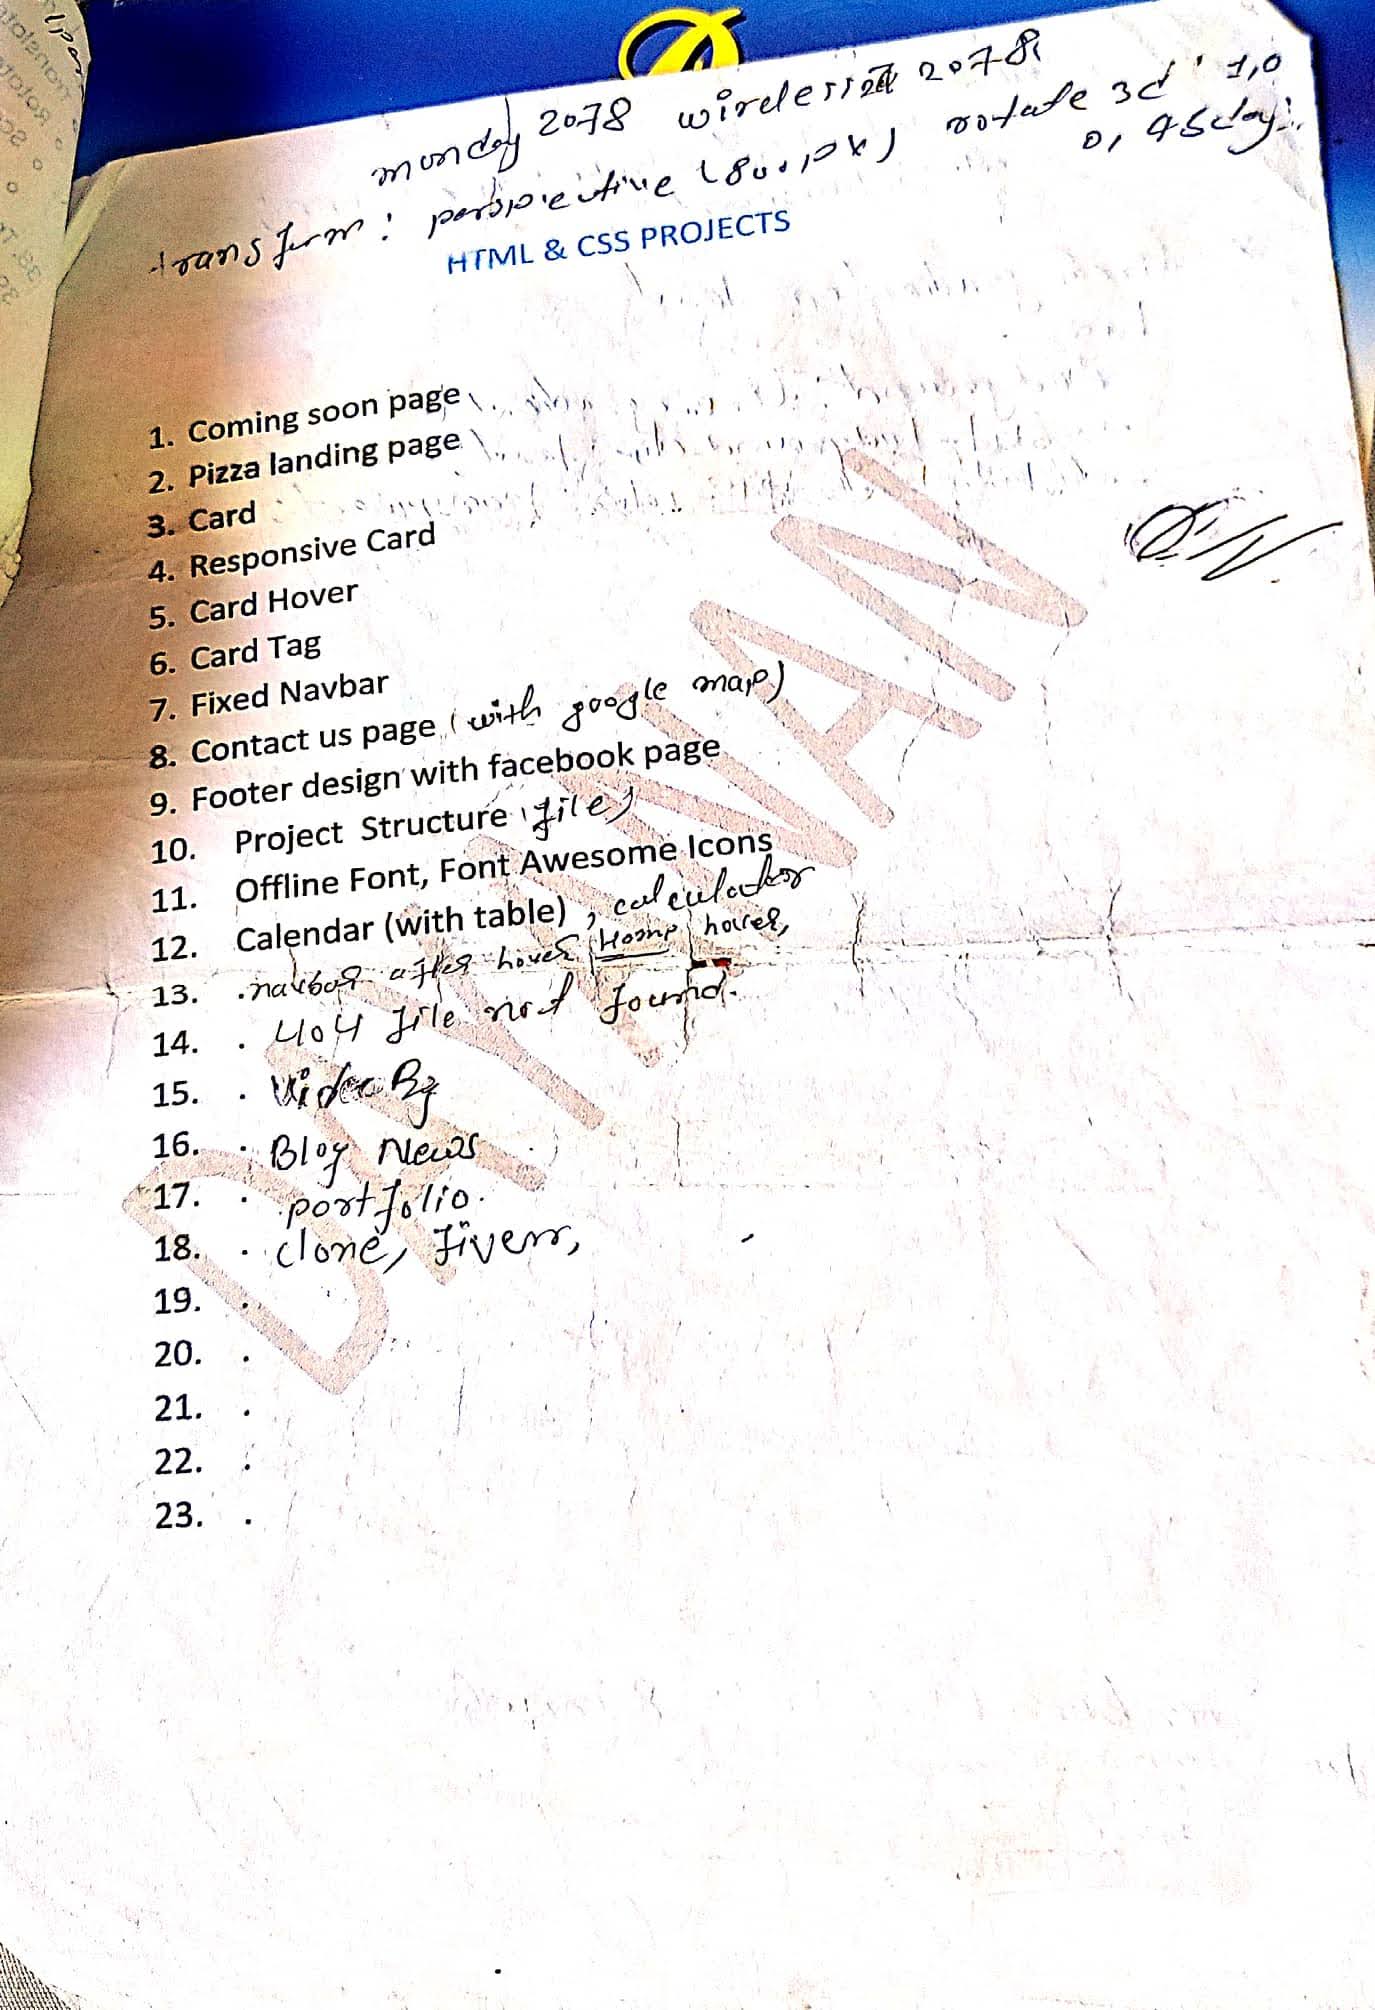 monday 2078 2078
transform: perspective (800px) rotate 3d 1,0
0, 45deg
HTML & CSS PROJECTS
1. Coming soon page
2. Pizza landing page
3. Card
4. Responsive Card
5. Card Hover
6. Card Tag
7. Fixed Navbar
8. Contact us page (with google map)
9. Footer design with facebook page
10. Project Structure (file)
11. Offline Font, Font Awesome Icons
12. Calendar (with table), calculator
13. . navbar after hover Home hover,
14. . 404 file not found.
15. . Video Bg
16. . Blog News
17. . portfolio.
18. . clone, fiverr,
19. .
20. .
21. .
22. .
23. .